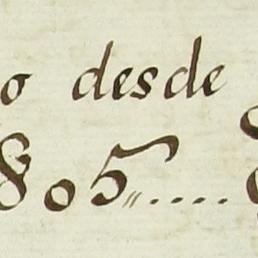 o desde
805"....